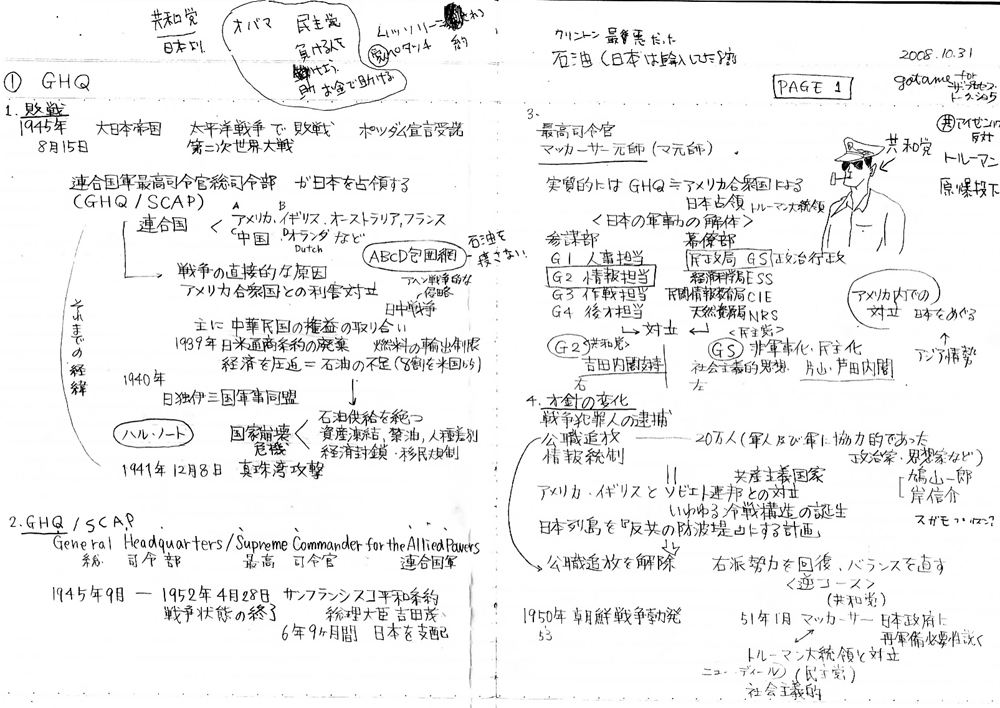 共和党
日本より
オバマ 民主党
負ける人を
助
お金で助ける
クリントン 最悪だった
石油(日本は輸入してた
2008.10.31
gotame for
PAGE 1
① GHQ
1. 敗戦
1945年 大日本帝国 太平洋戦争で敗戦 ポツダム宣言受諾
8月15日 第二次世界大戦
連合国軍最高司令官総司令部 が日本を占領する
(GHQ/SCAP)
連合国 < アメリカ、イギリス、オーストラリア,フランス
A B
中国、オランダなど
C D
Dutch
ABCD包囲網
石油を
渡さない
戦争の直接的な原因
アメリカ合衆国との利害対立
アヘン戦争的な
侵略
日中戦争
それまでの経緯
主に中華民国の権益の取り合い
1939年日米通商条約の廃棄 燃料の輸出制限
経済を圧迫=石油の不足(8割を米国から)
1940年
日独伊三国軍事同盟
ハル・ノート
国家崩壊 <
危機
石油供給を絶つ
資産凍結、禁油,人種差別
経済封鎖・移民規制
1941年12月8日 真珠湾攻撃
2. GHQ/SCAP
General Headquarters/Supreme Commander for the Allied Powers
総 司令部 最高 司令官 連合国軍
1945年9月 ― 1952年4月28日 サンフランシスコ平和条約
戦争状態の終了 総理大臣 吉田茂
6年9ヶ月間 日本を支配
3.
最高司令官
マッカーサー元師(マ元師)
共和党
共 アイゼンハ
反対
トルーマン
原爆投下
実質的にはGHQ≒アメリカ合衆国による
日本占領 トルーマン大統領
<日本の軍事力の解体>
参謀部 幕僚部
G1 人事担当 民政局 GS 政治行政
G2 情報担当 経済科学局 ESS
G3 作戦担当 民間情報教育局 CIE
G4 後方担当 天然資源局 NRS
→ 対立 ←
<民主党>
G2 <共和党> GS 非軍事化・民主化
吉田内閣支持 社会主義的思想. 片山・芦田内閣
右 左
アメリカ内での
対立 日本をめぐる
アジア情勢
4. 方針の変化
戦争犯罪人の逮捕
公職追放 ― 20万人(軍人及び軍に協力的であった
情報統制 政治家・思想家など)
鳩山一郎
岸信介
共産主義国家
アメリカ・イギリスとソビエト連邦との対立
いわゆる冷戦構造の誕生
日本列島を『反共の防波堤』にする計画
公職追放を解除 右派勢力を回復、バランスを直す
<逆コース>
(共和党)
1950年 朝鮮戦争勃発 51年1月 マッカーサー 日本政府に
53 再軍備必要性説く
トルーマン大統領と対立
ニュー・ディール (民主党)
社会主義的